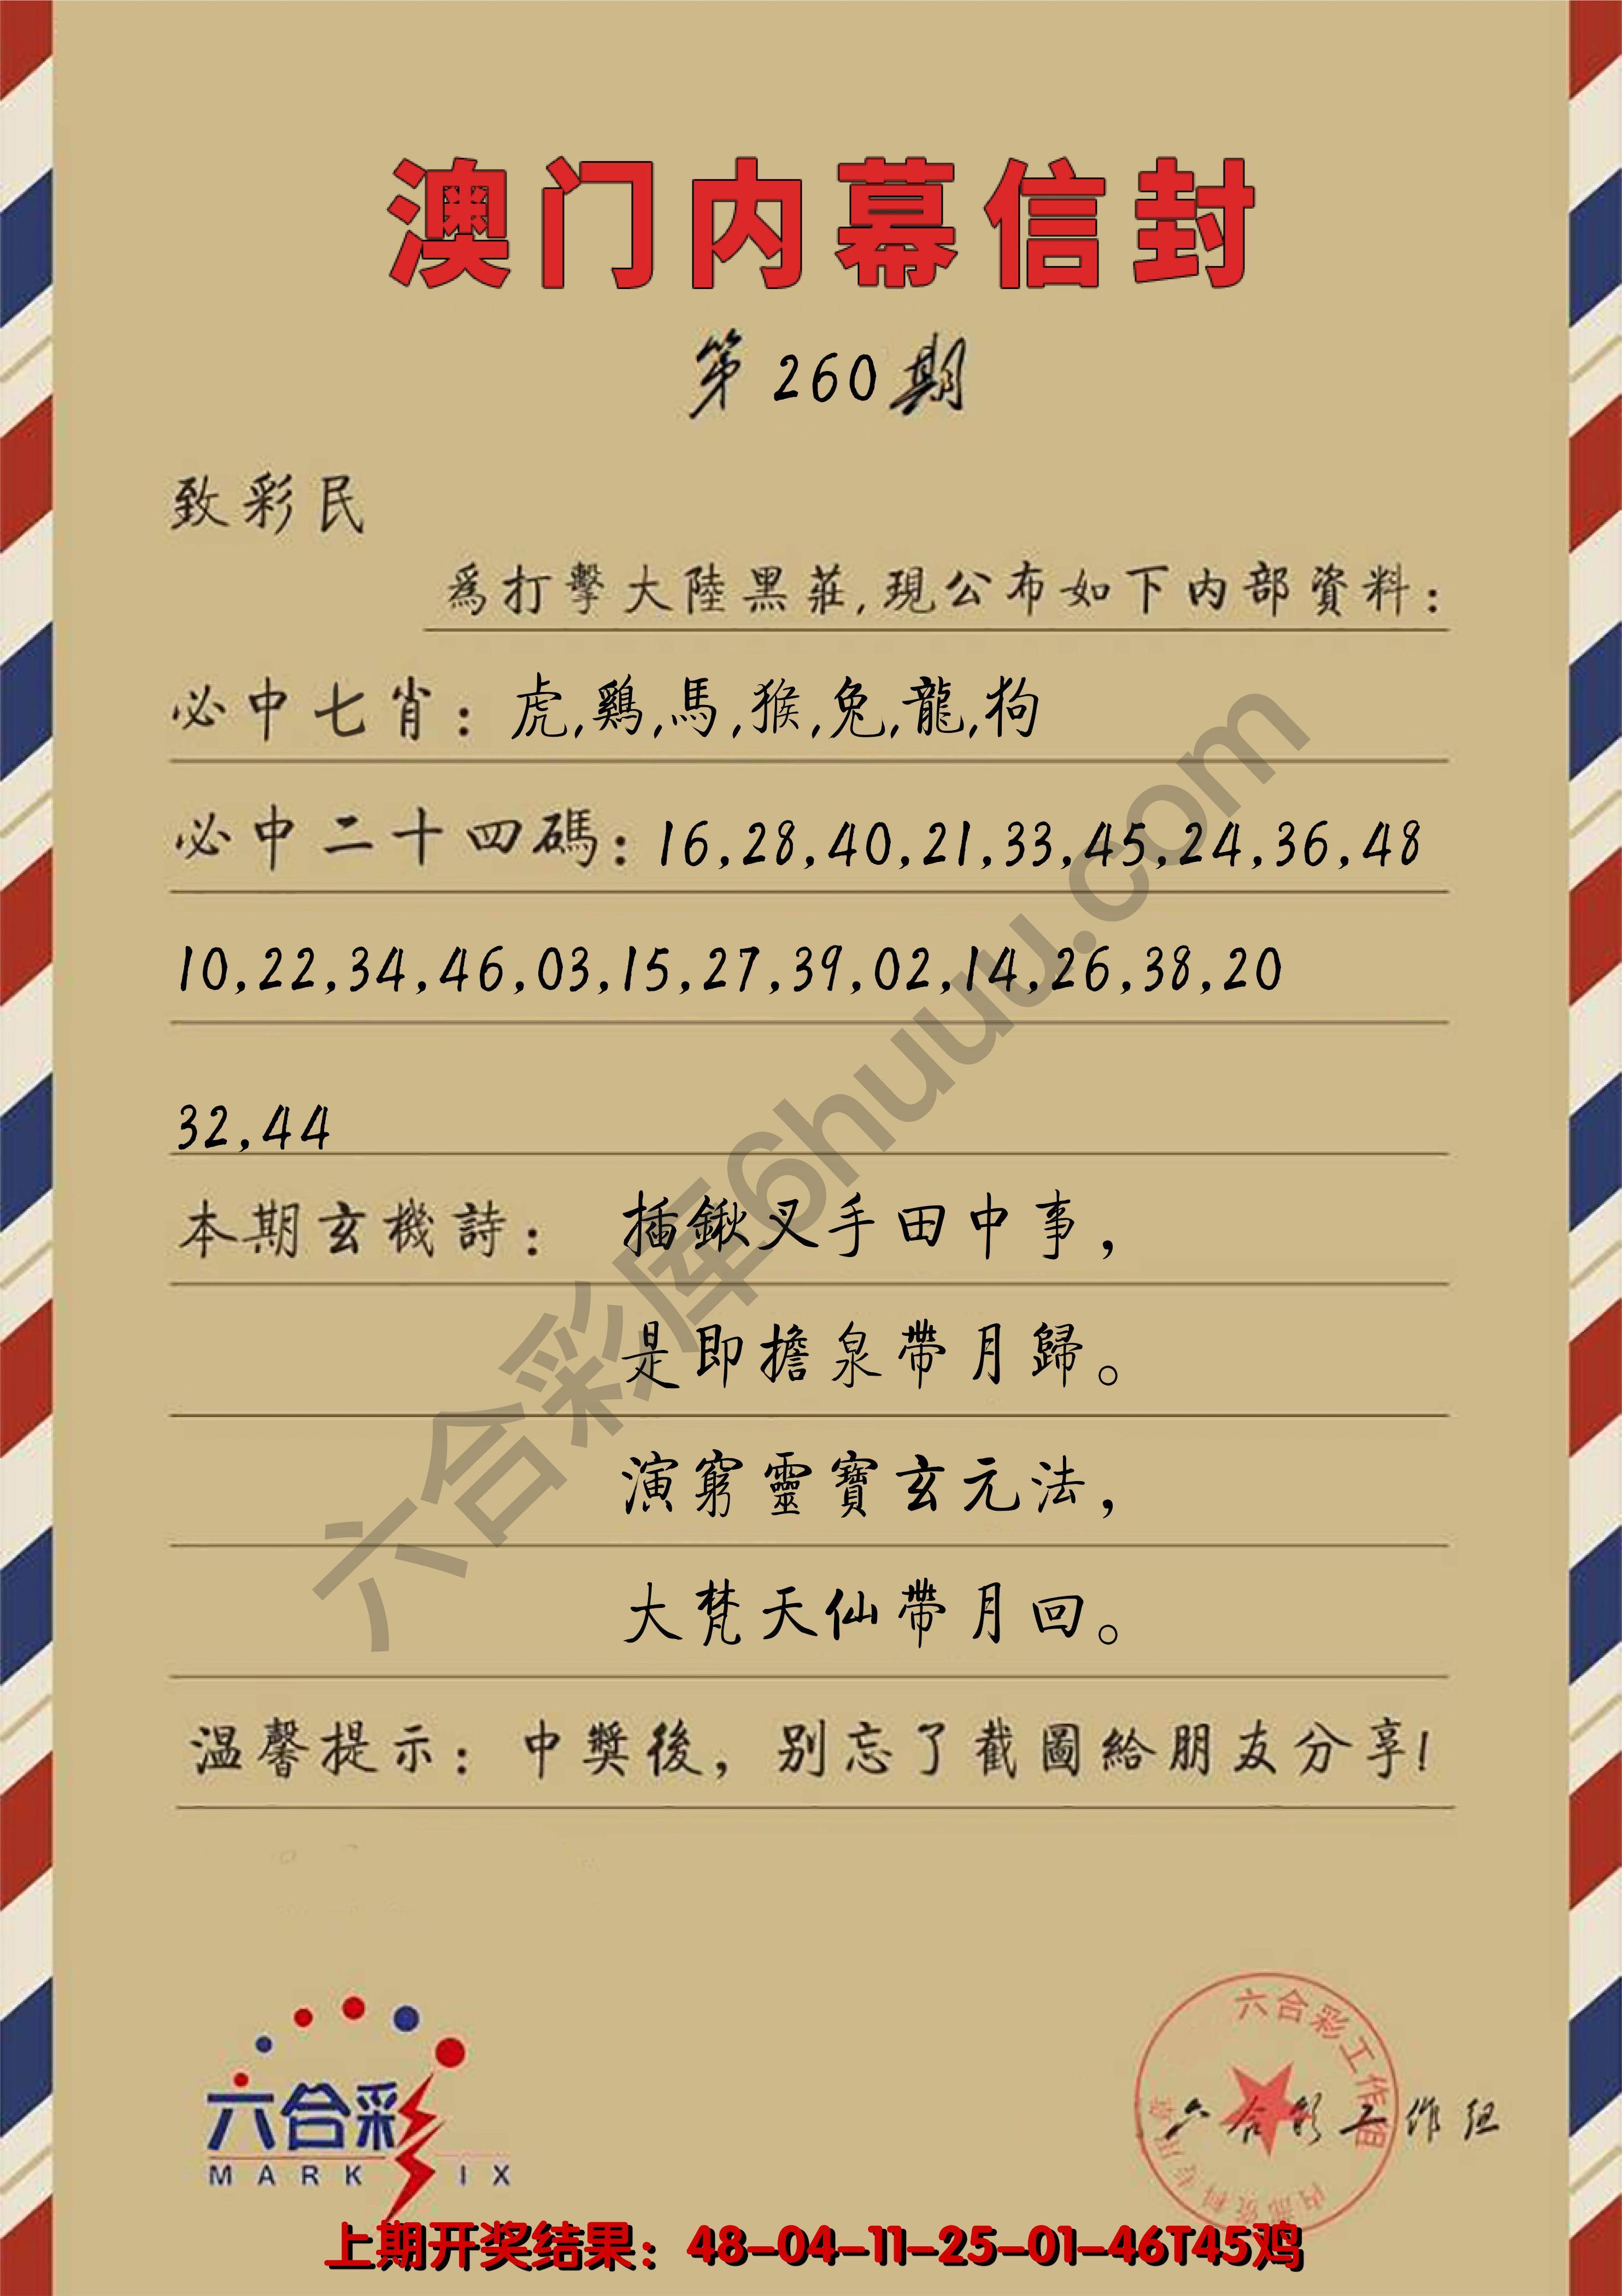 澳门内幕信封
第260期
致彩民
爲打擊大陸黑莊,現公布如下内部資料:
必中七肖: 虎,鷄,馬,猴,兔,龍,狗
必中二十四碼: 16,28,40,21,33,45,24,36,48
10,22,34,46,03,15,27,39,02,14,26,38,20
32,44
本期玄機詩: 插鍬叉手田中事,
是即擔泉帶月歸。
演窮靈寶玄元法,
大梵天仙帶月回。
温馨提示: 中獎後, 别忘了截圖給朋友分享!
六合彩库6huuu.com
六合彩
MARK IX
六合彩工作组
内部资料专用章
六合彩工作组
上期开奖结果: 48-04-11-25-01-46T45鸡